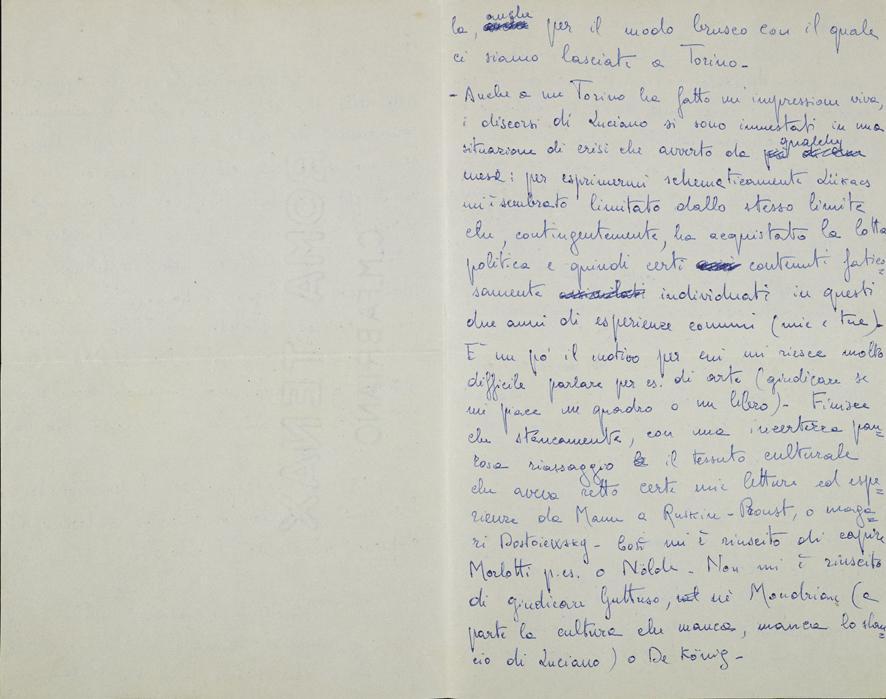 la, anche per il modo brusco con il quale
ci siamo lasciati a Torino –
– Anche a me Torino ha fatto un'impressione viva,
i discorsi di Luciano si sono innestati in una
situazione di crisi che avverto da qualche
mese: per esprimermi schematicamente Lükacs
mi è sembrato limitato dallo stesso limite
che, contingentemente, ha acquistato la lotta
politica e quindi certi contenuti fatico=
samente individuati in questi
due anni di esperienze comuni (mie e tue) –
È un po' il motivo per cui mi riesce molto
difficile parlare per es. di arte (giudicare se
mi piace un quadro o un libro) – Finisce
che stancamente, con una incertezza pau=
rosa riassaggio il tessuto culturale
che aveva retto certe mie letture ed espe=
rienze da Mann a Ruskin – Proust, o maga=
ri Dostoiewsky – Così mi è riuscito di capire
Morlotti p. es. o Nolde – Non mi è riuscito
di giudicare Guttuso, né Mondrian (a
parte la cultura che manca, manca lo slan=
cio di Luciano) o De König –